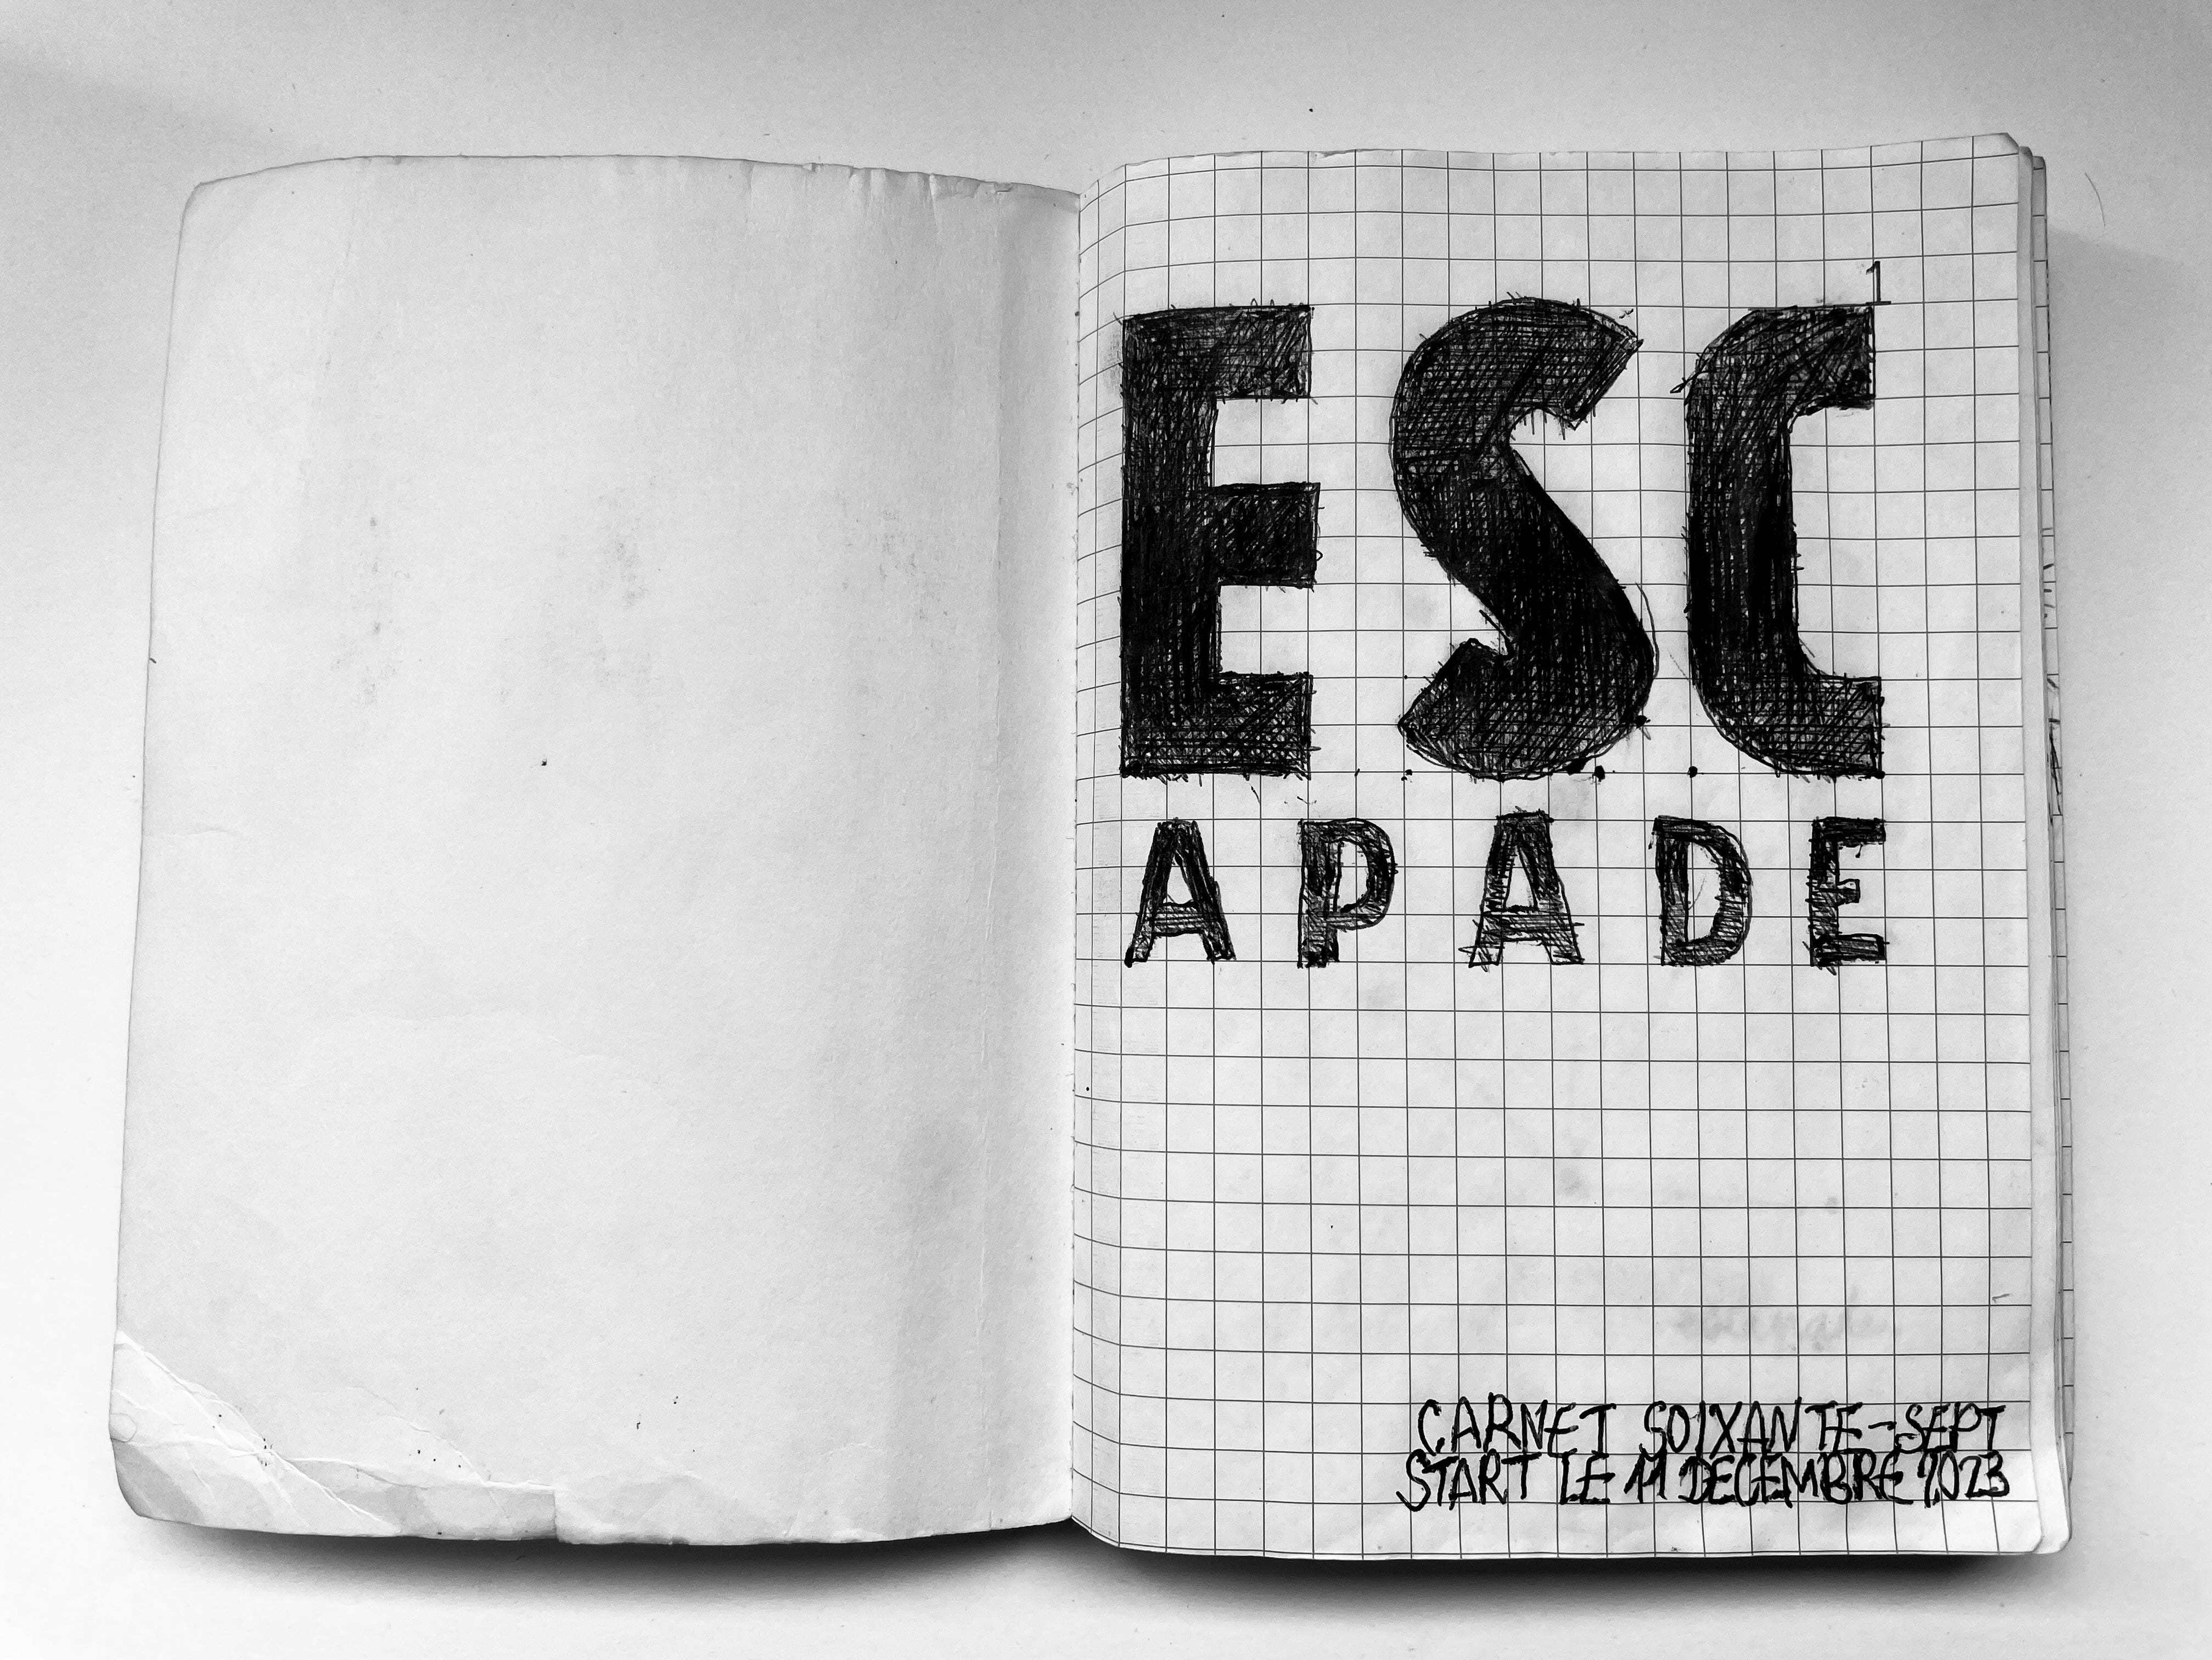 1
ESC
APADE
CARNET SOIXANTE-SEPT
START LE 11 DECEMBRE 2023